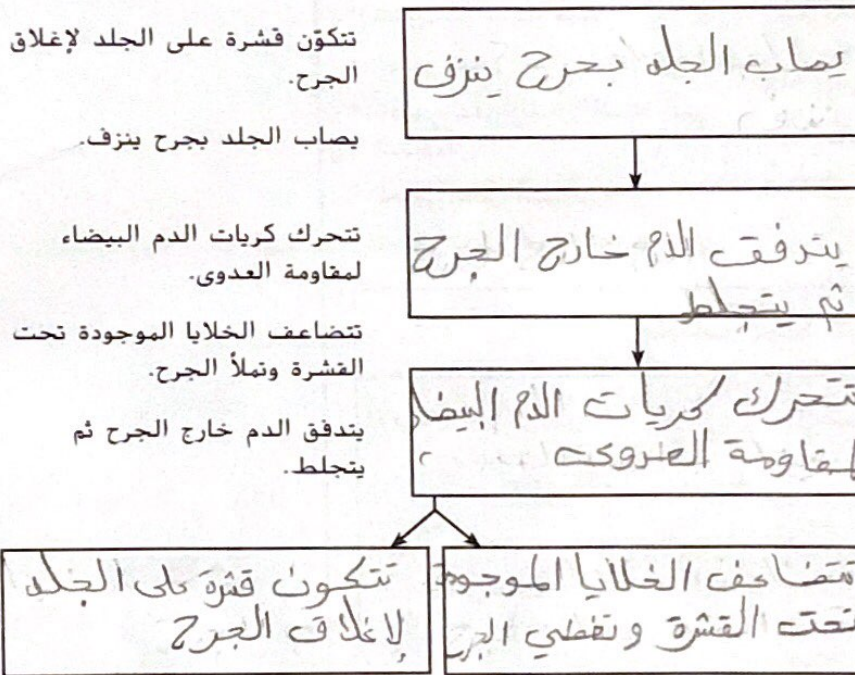 تتكوّن قشرة على الجلد لإغلاق
الجرح.
يصاب الجلد بجرح ينزف.
تتحرك كريات الدم البيضاء
لمقاومة العدوى.
تتضاعف الخلايا الموجودة تحت
القشرة وتملأ الجرح.
يتدفق الدم خارج الجرح ثم
يتجلط.
يصاب الجلد بجرح ينزف
يتدفق الدم خارج الجرح
ثم يتجلط
تتحرك كريات الدم البيضاء
لمقاومة العدوى
تتضاعف الخلايا الموجودة
تحت القشرة وتغطي الجرح
تتكون قشرة على الجلد
لإغلاق الجرح